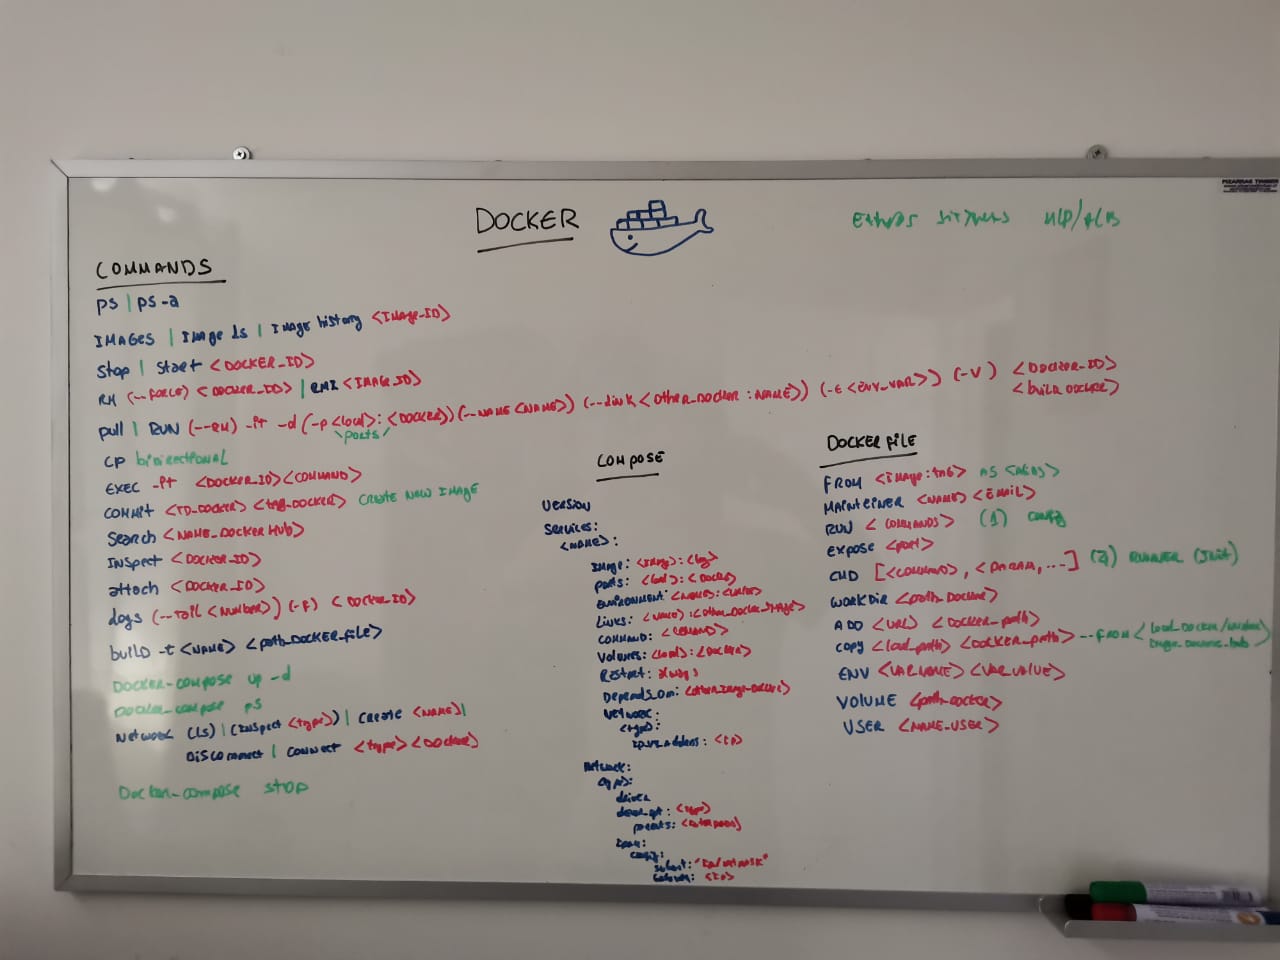 DOCKER
COMMANDS
ps | ps -a
IMAGES | Image ls | IMAGE history <IMAGE-ID>
stop | start <DOCKER_ID>
RM (--FORCE) <DOCKER_ID> | RMI <IMAGE_ID>
pull | RUN (--RM) -it -d (-p <local>:<DOCKER>) (--NAME <NAME>) (--link <other_DOCKER:NAME>) (-E <ENV_VAR>) (-V) <DOCKER_ID>
<build DOCKER>
\ports/
CP bidirectional
EXEC -it <DOCKER_ID><COMMAND>
COMMIT <ID_DOCKER> <tag_DOCKER> CREATE NEW IMAGE
Search <NAME_DOCKER HUB>
INSpect <DOCKER_ID>
attach <DOCKER_ID>
logs (--Tail <NUMBER>) (-F) <DOCKER_ID>
build -t <NAME> <path_DOCKER_FILE>
DOCKER-compose up -d
DOCKER-compose ps
NETWORK (LS) | (INSpect <type>) | Create <NAME> |
DISCONNECT | CONNECT <type> <DOCKER>
Docker-compose stop
COMPOSE
VERSION
Services:
<NAME>:
IMAGE: <IMAGE>:<tag>
ports: <local>:<DOCKER>
ENVIRONMENT: <NAME>:<VALUE>
Links: <NAME>:<other_DOCKER_IMAGE>
COMMAND: <COMMAND>
Volumes: <local>:<DOCKER>
Restart: always
Depends_on: <other_image_docker>
NETWORK:
<type>:
<IP>
Network:
<type>:
driver
<type>
parents:
config:
subnet: "IP/NETMASK"
<IP>
DOCKER FILE
FROM <IMAGE:TAG> AS <ALIAS>
MAINTEINER <NAME> <EMAIL>
RUN <COMMANDS> (1) config
EXPOSE <port>
CMD [<COMMAND>, <PARAM, ...] (2) RUNNER (INIT)
WORKDIR <path_Docker>
ADD <URL> <DOCKER_path>
COPY <local_path> <DOCKER_path> --FROM <
ENV <VAR NAME> <VAR VALUE>
VOLUME <path_DOCKER>
USER <NAME-USER>